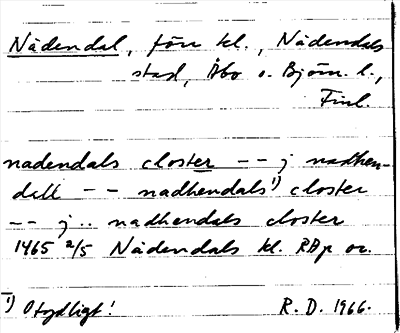 Nådendal, förr kl., Nådendals
stad, Åbo o. Björn. l.,
Finl.
nadendals closter -- j nadhen-
dell -- nadhendals 1) closter
-- j .. nadhendals closter
1465 2/5 Nådendals kl. RAp or.
1) Otydligt! R. D. 1966.